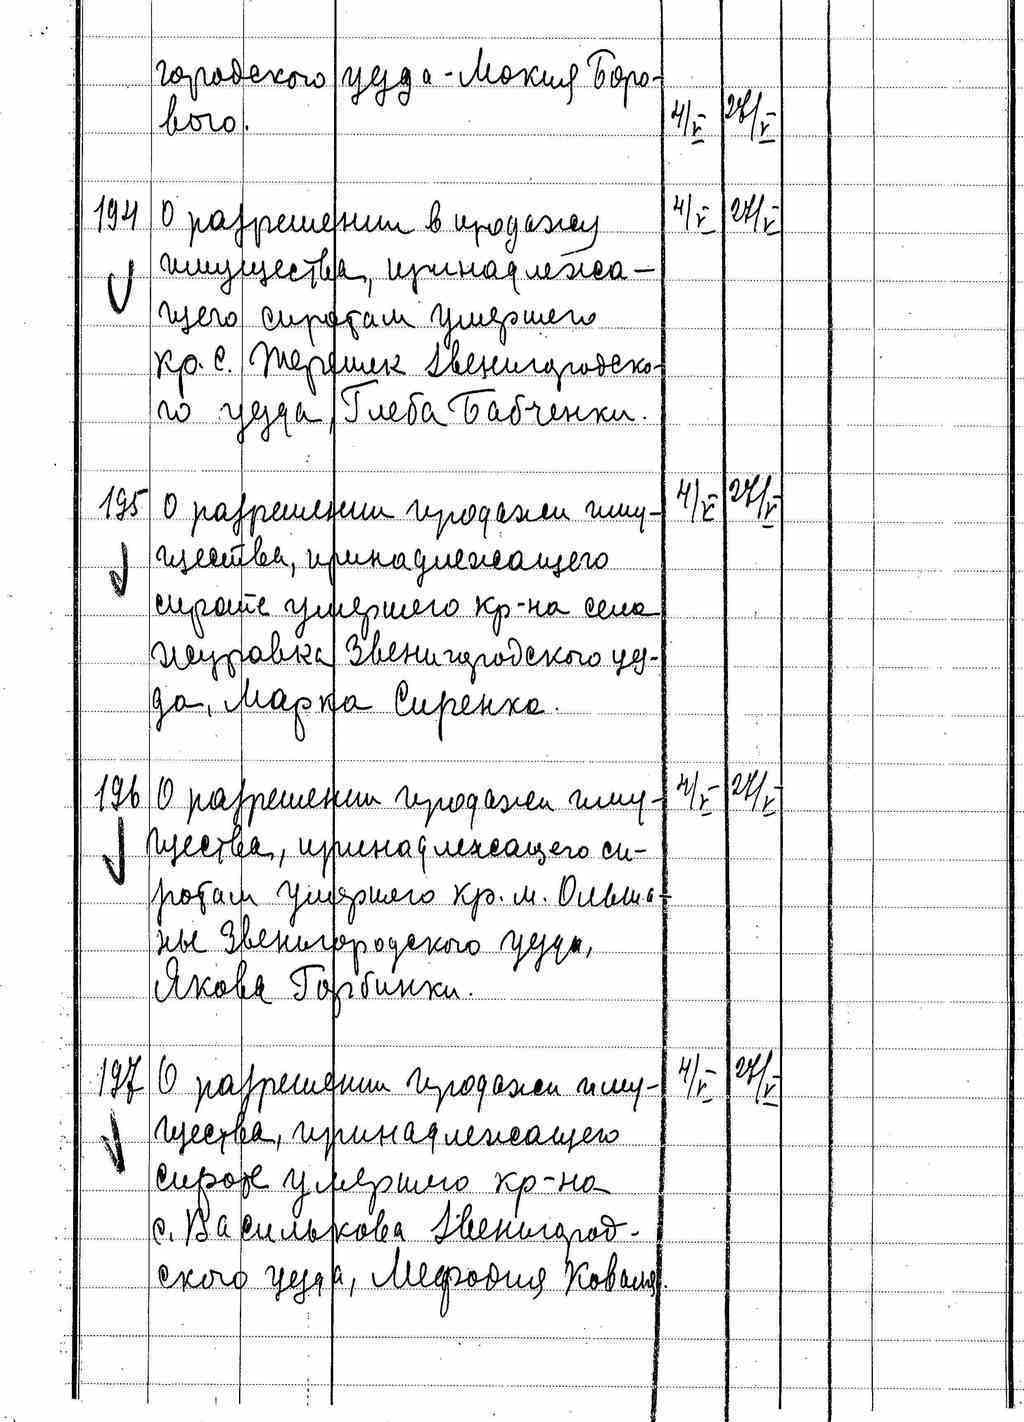 городского уезда - Мокия Боро-
вого. 4/V 27/V
194 О разрешении в продажу 4/V 27/V
имущества, принадлежа-
щего сиротам умершего
кр. с. Терешек Звенигородско-
го уезда, Глеба Бабченки.
195 О разрешении продажи иму- 4/V 27/V
щества, принадлежащего
сироте умершего кр-на села
Журавка Звенигородского уез-
да, Марка Сиренка.
196 О разрешении продажи иму- 4/V 27/V
щества, принадлежащего си-
ротам умершего кр. м. Ольша-
ны Звенигородского уезда,
Якова Горбинки.
197 О разрешении продажи иму- 4/V 27/V
щества, принадлежащего
сироте умершего кр-на
с. Василькова Звенигород-
ского уезда, Мефодия Коваля.